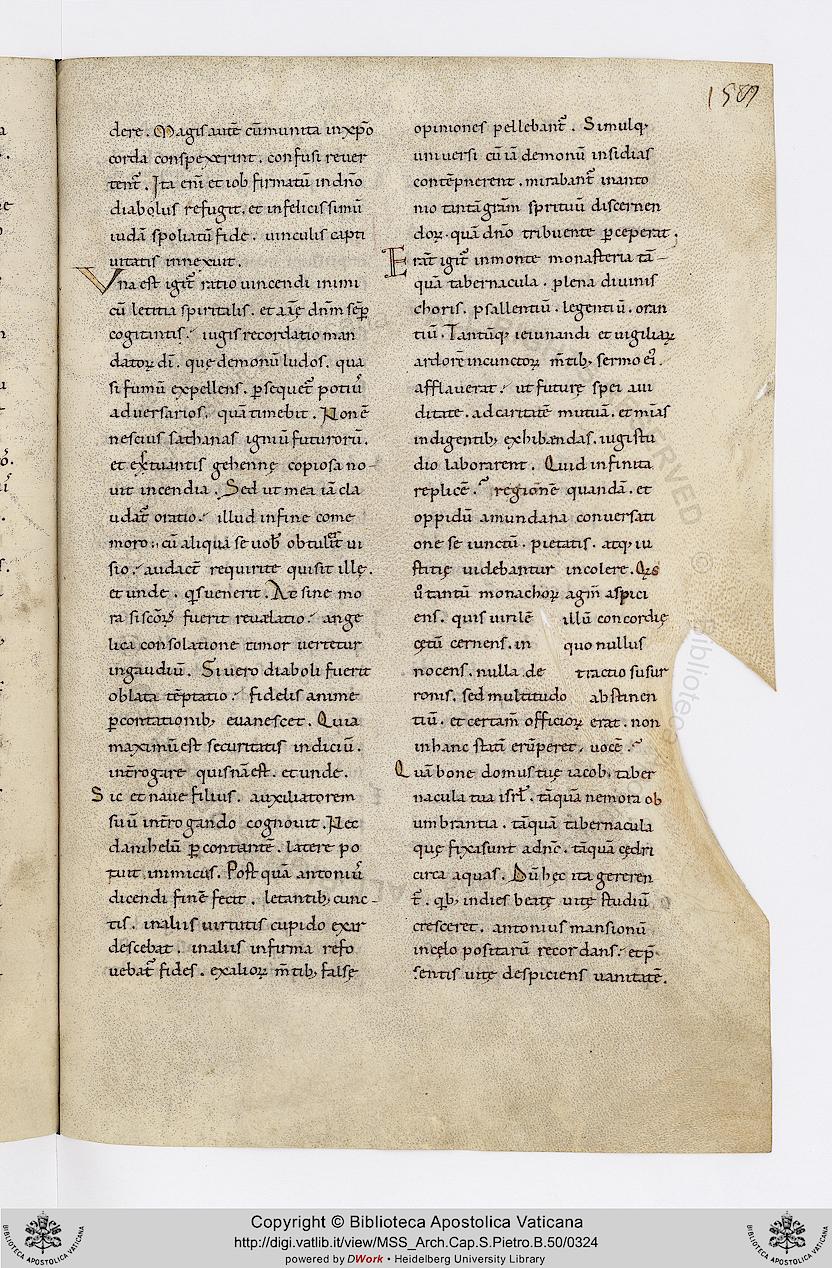 1589
dere. Magis autē cū munita in xp̄o
corda conspexerint. confusi rever
tent̄. Ita eni et iob firmatū in dn̄o
diabolus refugit. et infelicissimū
iudā spoliatū fide. vinculis capti
vitatis innexuit.
Vna est igit̄ ratio vincendi inimi
cū letitia spiritalis. et aīę dn̄m sēp̄
cogitantis. iugis recordatio man
datoꝝ dī. quę demonū ludos. qua
si fumū expellens. ꝑsequet̄ potiꝰ
adversarios. quā timebit. Non ē
nescius sathanas igniū futuroꝝ.
et extuantis gehennę copiosa no-
vit incendia. Sed ut mea iā cla
udat̄ oratio. illud in fine come
moro. cū aliqua se vob obtulit̄ vi
sio. audact̄ requirite qui sit illę.
et unde. qs venerit. At sine mo
ra si scōꝝ fuerit revelatio. ange
lica consolatione timor vertetur
in gaudiū. Si vero diaboli fuerit
oblata tēptatio. fidelis anime
ꝑcontationib; evanescet. Quia
maximū est securitatis indiciū.
int̄rogare quisnā est. et unde.
Sic et nave filius. auxiliatorem
suū int̄rogando cognovit. Nec
danihelū ꝑcontantē. latere po
tuit inimicus. Post quā antoniꝰ
dicendi finē fecit. letantib; cunc-
tis. in aliis virtutis cupido exar
descebat. in aliis infirma refo
vebat̄ fides. ex alioꝝ m̄tib; falsę
opiniones pellebant̄. Simulq;
universi cū iā demonū insidias
contēpnerent. mirabant̄ in anto
nio tantā gr̄am sprituū discernen
doꝝ. quā dn̄o tribuente ꝑceperat.
Erāt igit̄ in monte monasteria tā-
quā tabernacula. plena divinis
choris. psallentiū. legentiū. oran
tiū. Tantūq; ieiunandi et vigiliaꝝ
ardorē in cunctoꝝ m̄tib; sermo eiꝰ.
afflaverat. ut futurę spei avi
ditate. ad caritatē mutuā. et mīas
indigentib; exhibendas. iugi stu
dio laborarent. Quid infinita
replicē. regionē quandā. et
oppidū a mundana conversati
one seiunctū. pietatis. atq; iu
stitię videbantur incolere. Qs
ů tantū monachoꝝ agm̄ aspici
ens. quis virilē illū concordię
cętū cernens. in quo nullus
nocens. nulla detractio susur
ronis. sed multitudo abstinen
tiū. et certam̄ officioꝝ erat. non
in hanc statī erūperet. vocē.
Quā bone domus tuę iacob. taber
nacula tua isrl̄. tāquā nemora ob
umbrantia. tāquā tabernacula
quę fixa sunt a dn̄o. tāquā cędri
circa aquas. Dū hęc ita gereren
t̄. qb; indies beatę vitę studiū
cresceret. antonius mansionū
in cęlo positarū recordans. et p̄
sentis vitę despiciens vanitatē.
Copyright © Biblioteca Apostolica Vaticana
http://digi.vatlib.it/view/MSS_Arch.Cap.S.Pietro.B.50/0324
powered by DWork • Heidelberg University Library